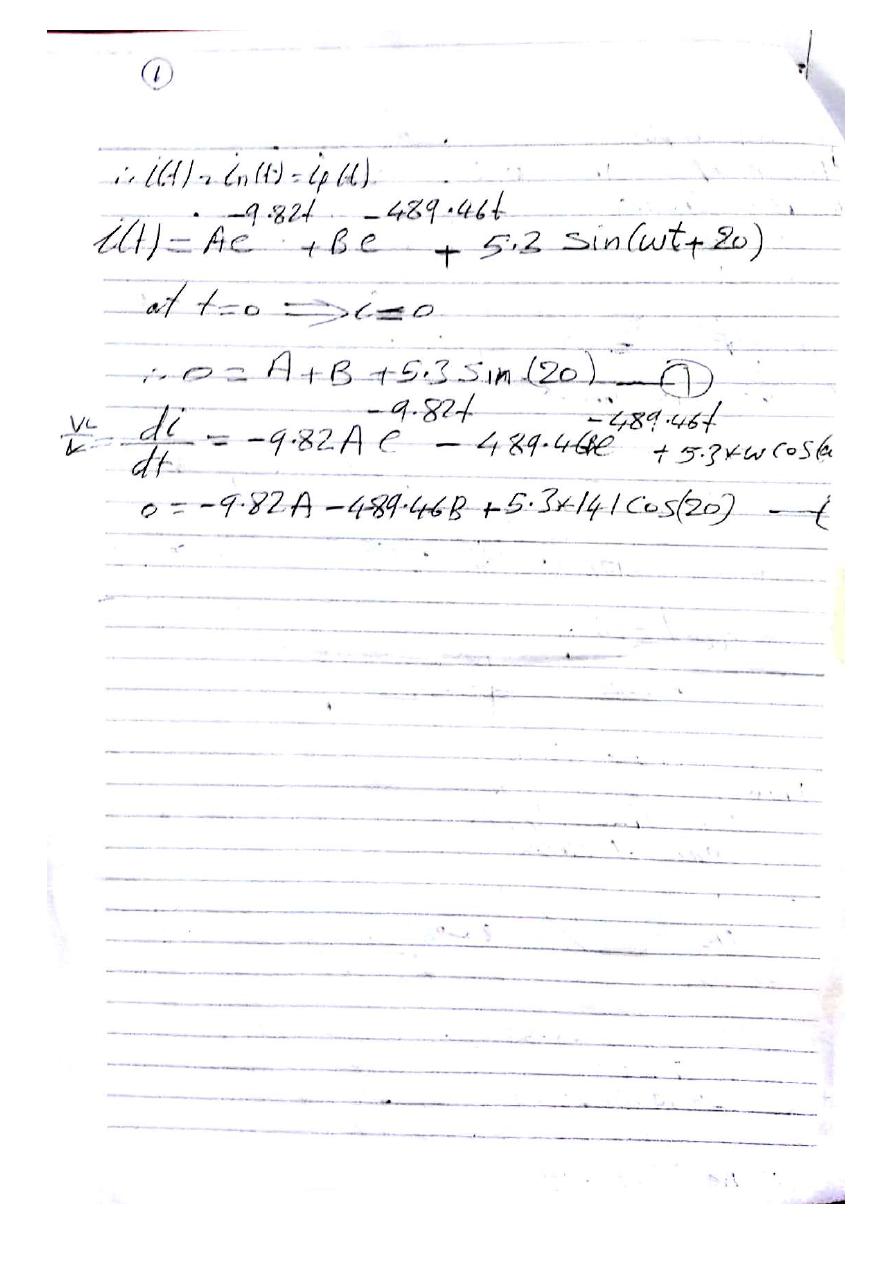 ①
∴ i(t) = in(t) = ip(t)
i(t) = Ae^-9.82t + Be^-489.46t + 5.3 sin(wt+20)
at t=0 ⟹ i=0
∴ 0 = A+B+5.3 Sin(20) — ①
VL/L = di/dt = -9.82A e^-9.82t - 489.46Be^-489.46t + 5.3*w cos(
0 = -9.82A - 489.46B + 5.3*141 Cos(20) —